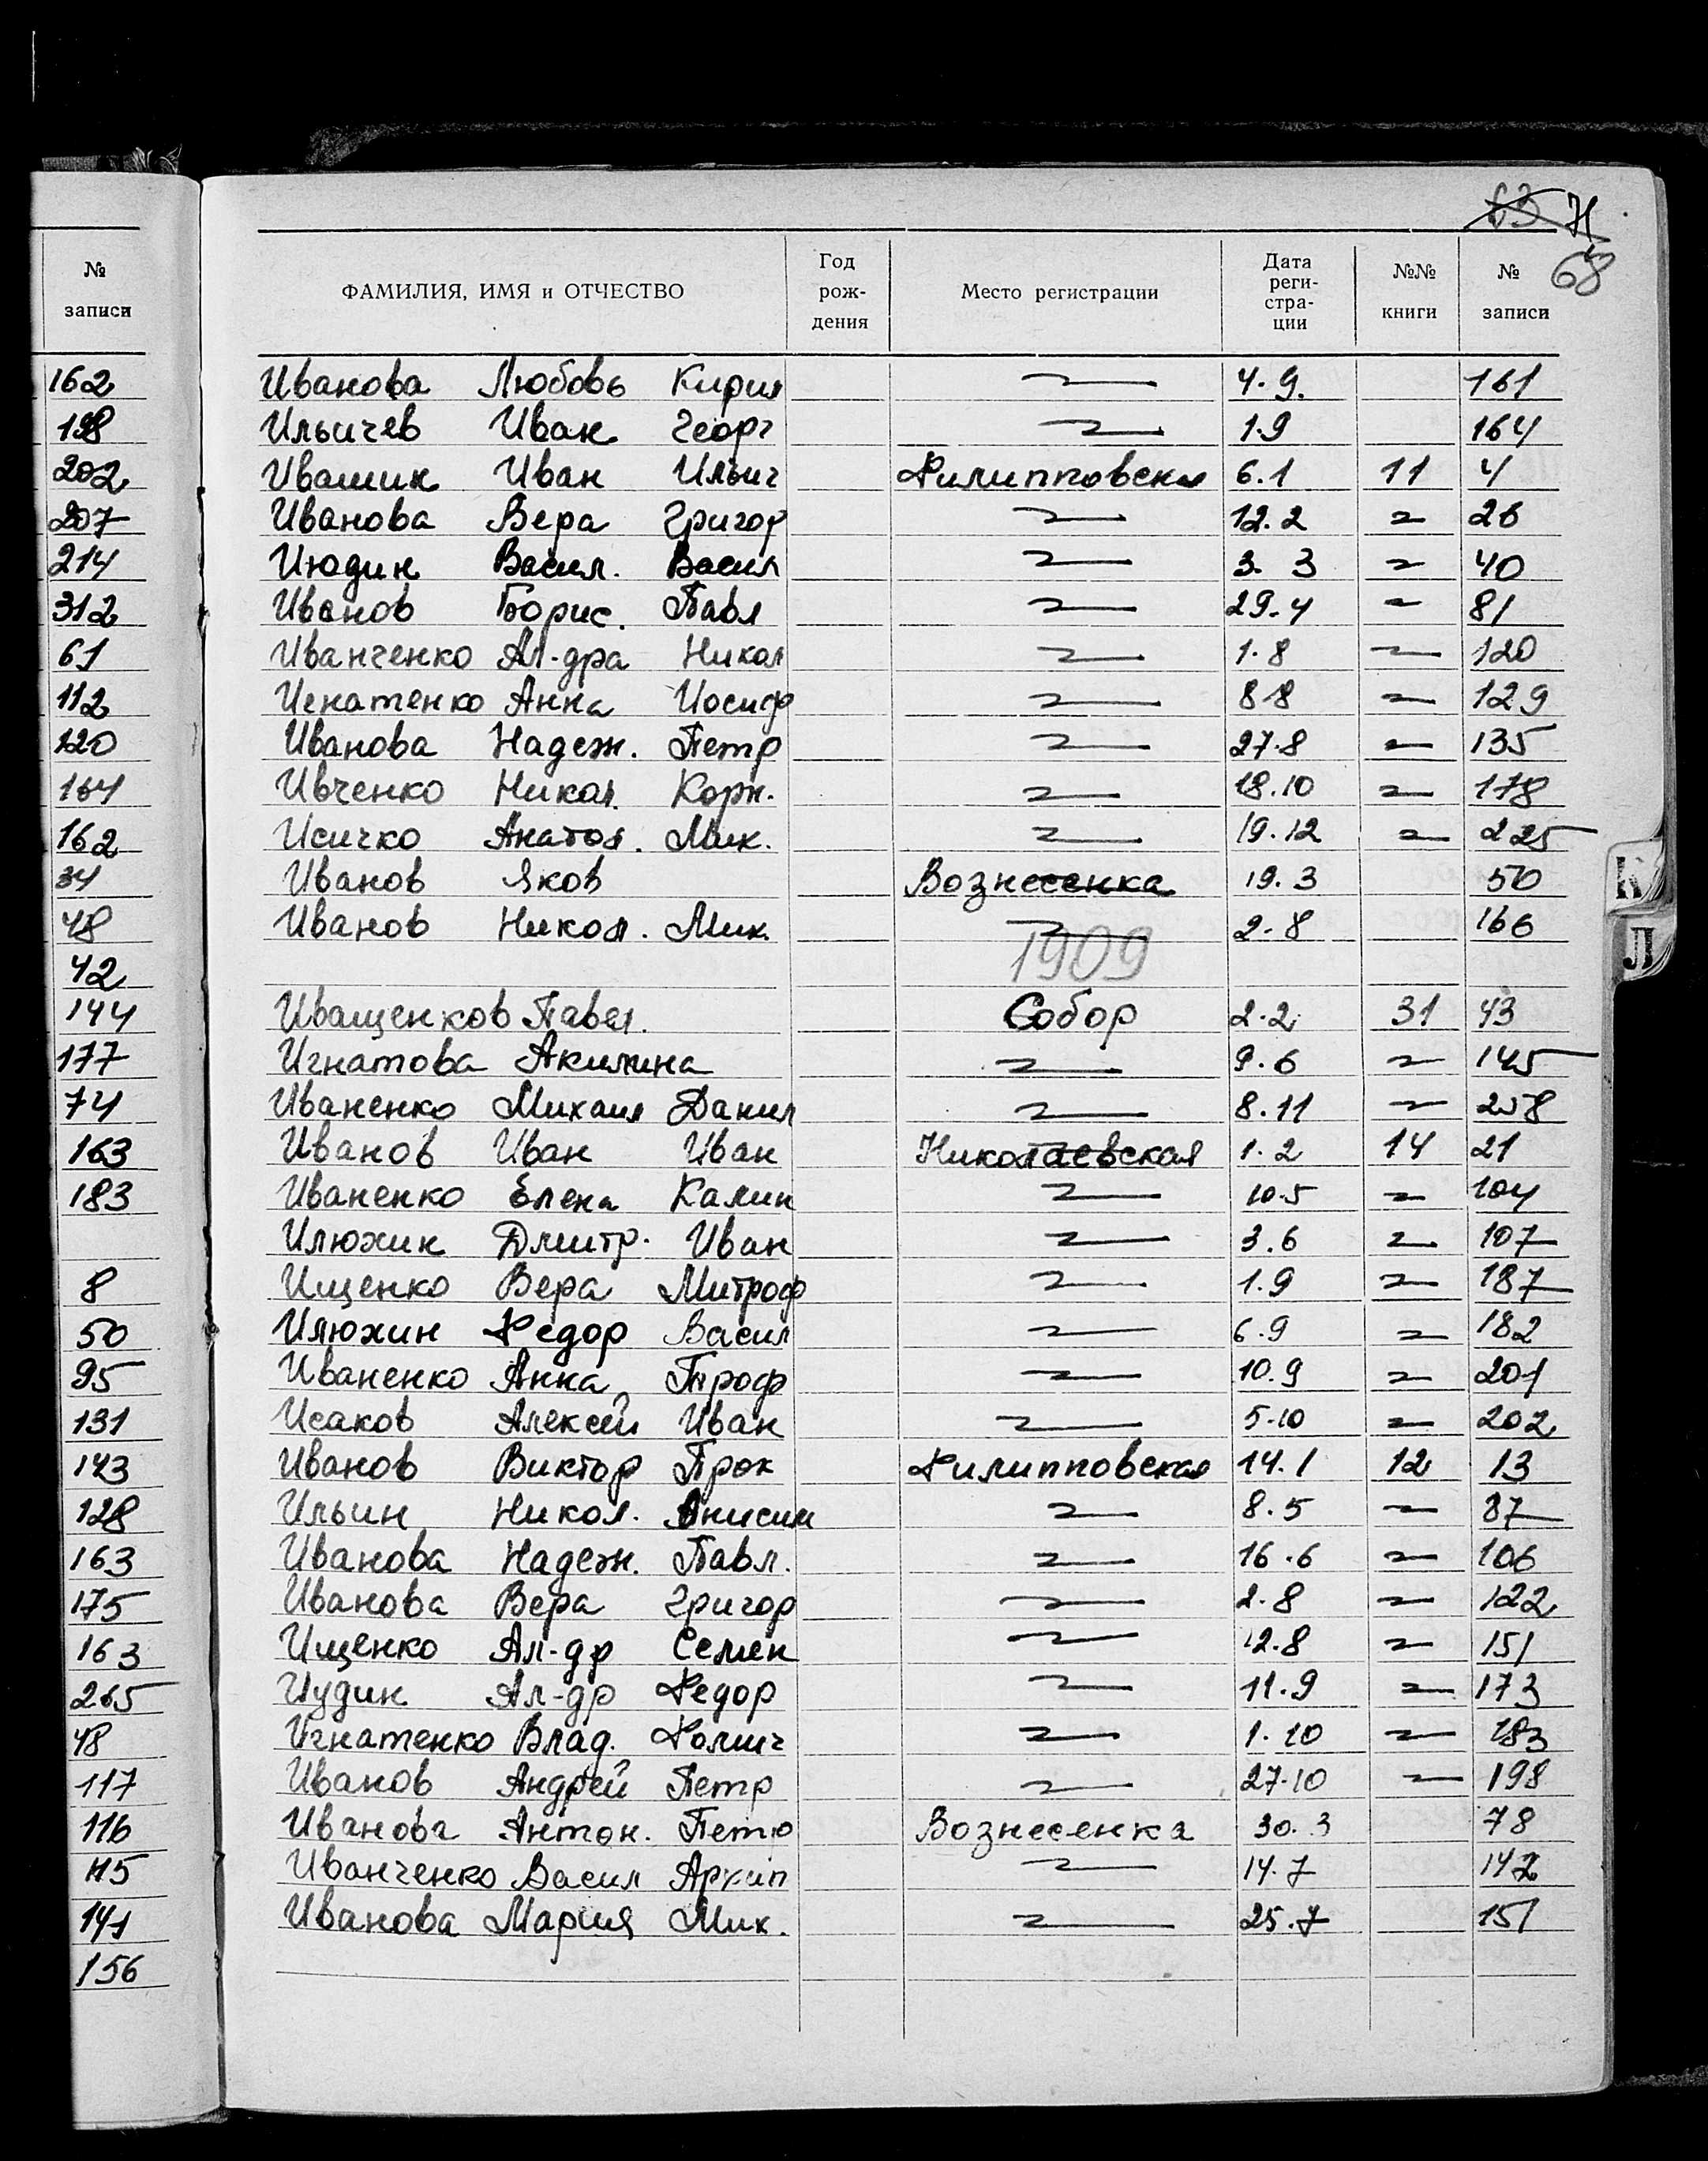 63 И
68
№ записи
162
198
202
207
214
312
61
112
120
164
162
34
48
42
144
177
74
163
183
8
50
95
131
143
128
163
175
163
265
48
117
116
115
141
156
ФАМИЛИЯ, ИМЯ и ОТЧЕСТВО Год рож- дения Место регистрации Дата реги- стра- ции №№ книги № записи
Иванова Любовь Кирил 4.9. 161
Ильичев Иван Георг 1.9 164
Ивашик Иван Ильич Филипповская 6.1 11 4
Иванова Вера Григор 12.2 26
Июдин Васил. Васил 3. 3 40
Иванов Борис. Павл 29.4 81
Иванченко Ал-дра Никол 1.8 120
Игнатенко Анна Иосиф 8.8 129
Иванова Надеж. Петр 27.8 135
Ивченко Никол. Корн. 18.10 178
Исичко Анатол. Мих. 19.12 225
Иванов Яков Вознесенка 19.3 50
Иванов Никол. Мих. 2.8 166
1909
Иващенков Павел. Собор 2.2 31 43
Игнатова Акилина 9.6 145
Иваненко Михаил Данил 8.11 258
Иванов Иван Иван Николаевская 1.2 14 21
Иваненко Елена Калин 10.5 104
Илюхин Дмитр. Иван 3.6 107
Ищенко Вера Митроф 1.9 187
Илюхин Федор Васил 6.9 182
Иваненко Анна Троф 10.9 201
Исаков Алексей Иван 5.10 202
Иванов Виктор Прок Филипповская 14.1 12 13
Ильин Никол. Анисим 8.5 87
Иванова Надеж. Павл. 16.6 106
Иванова Вера Григор 2.8 122
Ищенко Ал-др Семен 12.8 151
Иудин Ал-др Федор 11.9 173
Игнатенко Влад. Фомич 1.10 183
Иванов Андрей Петр 27.10 198
Иванова Антон. Петр Вознесенка 30.3 78
Иванченко Васил Архип 14.7 142
Иванова Мария Мих. 25.7 151
К
Л